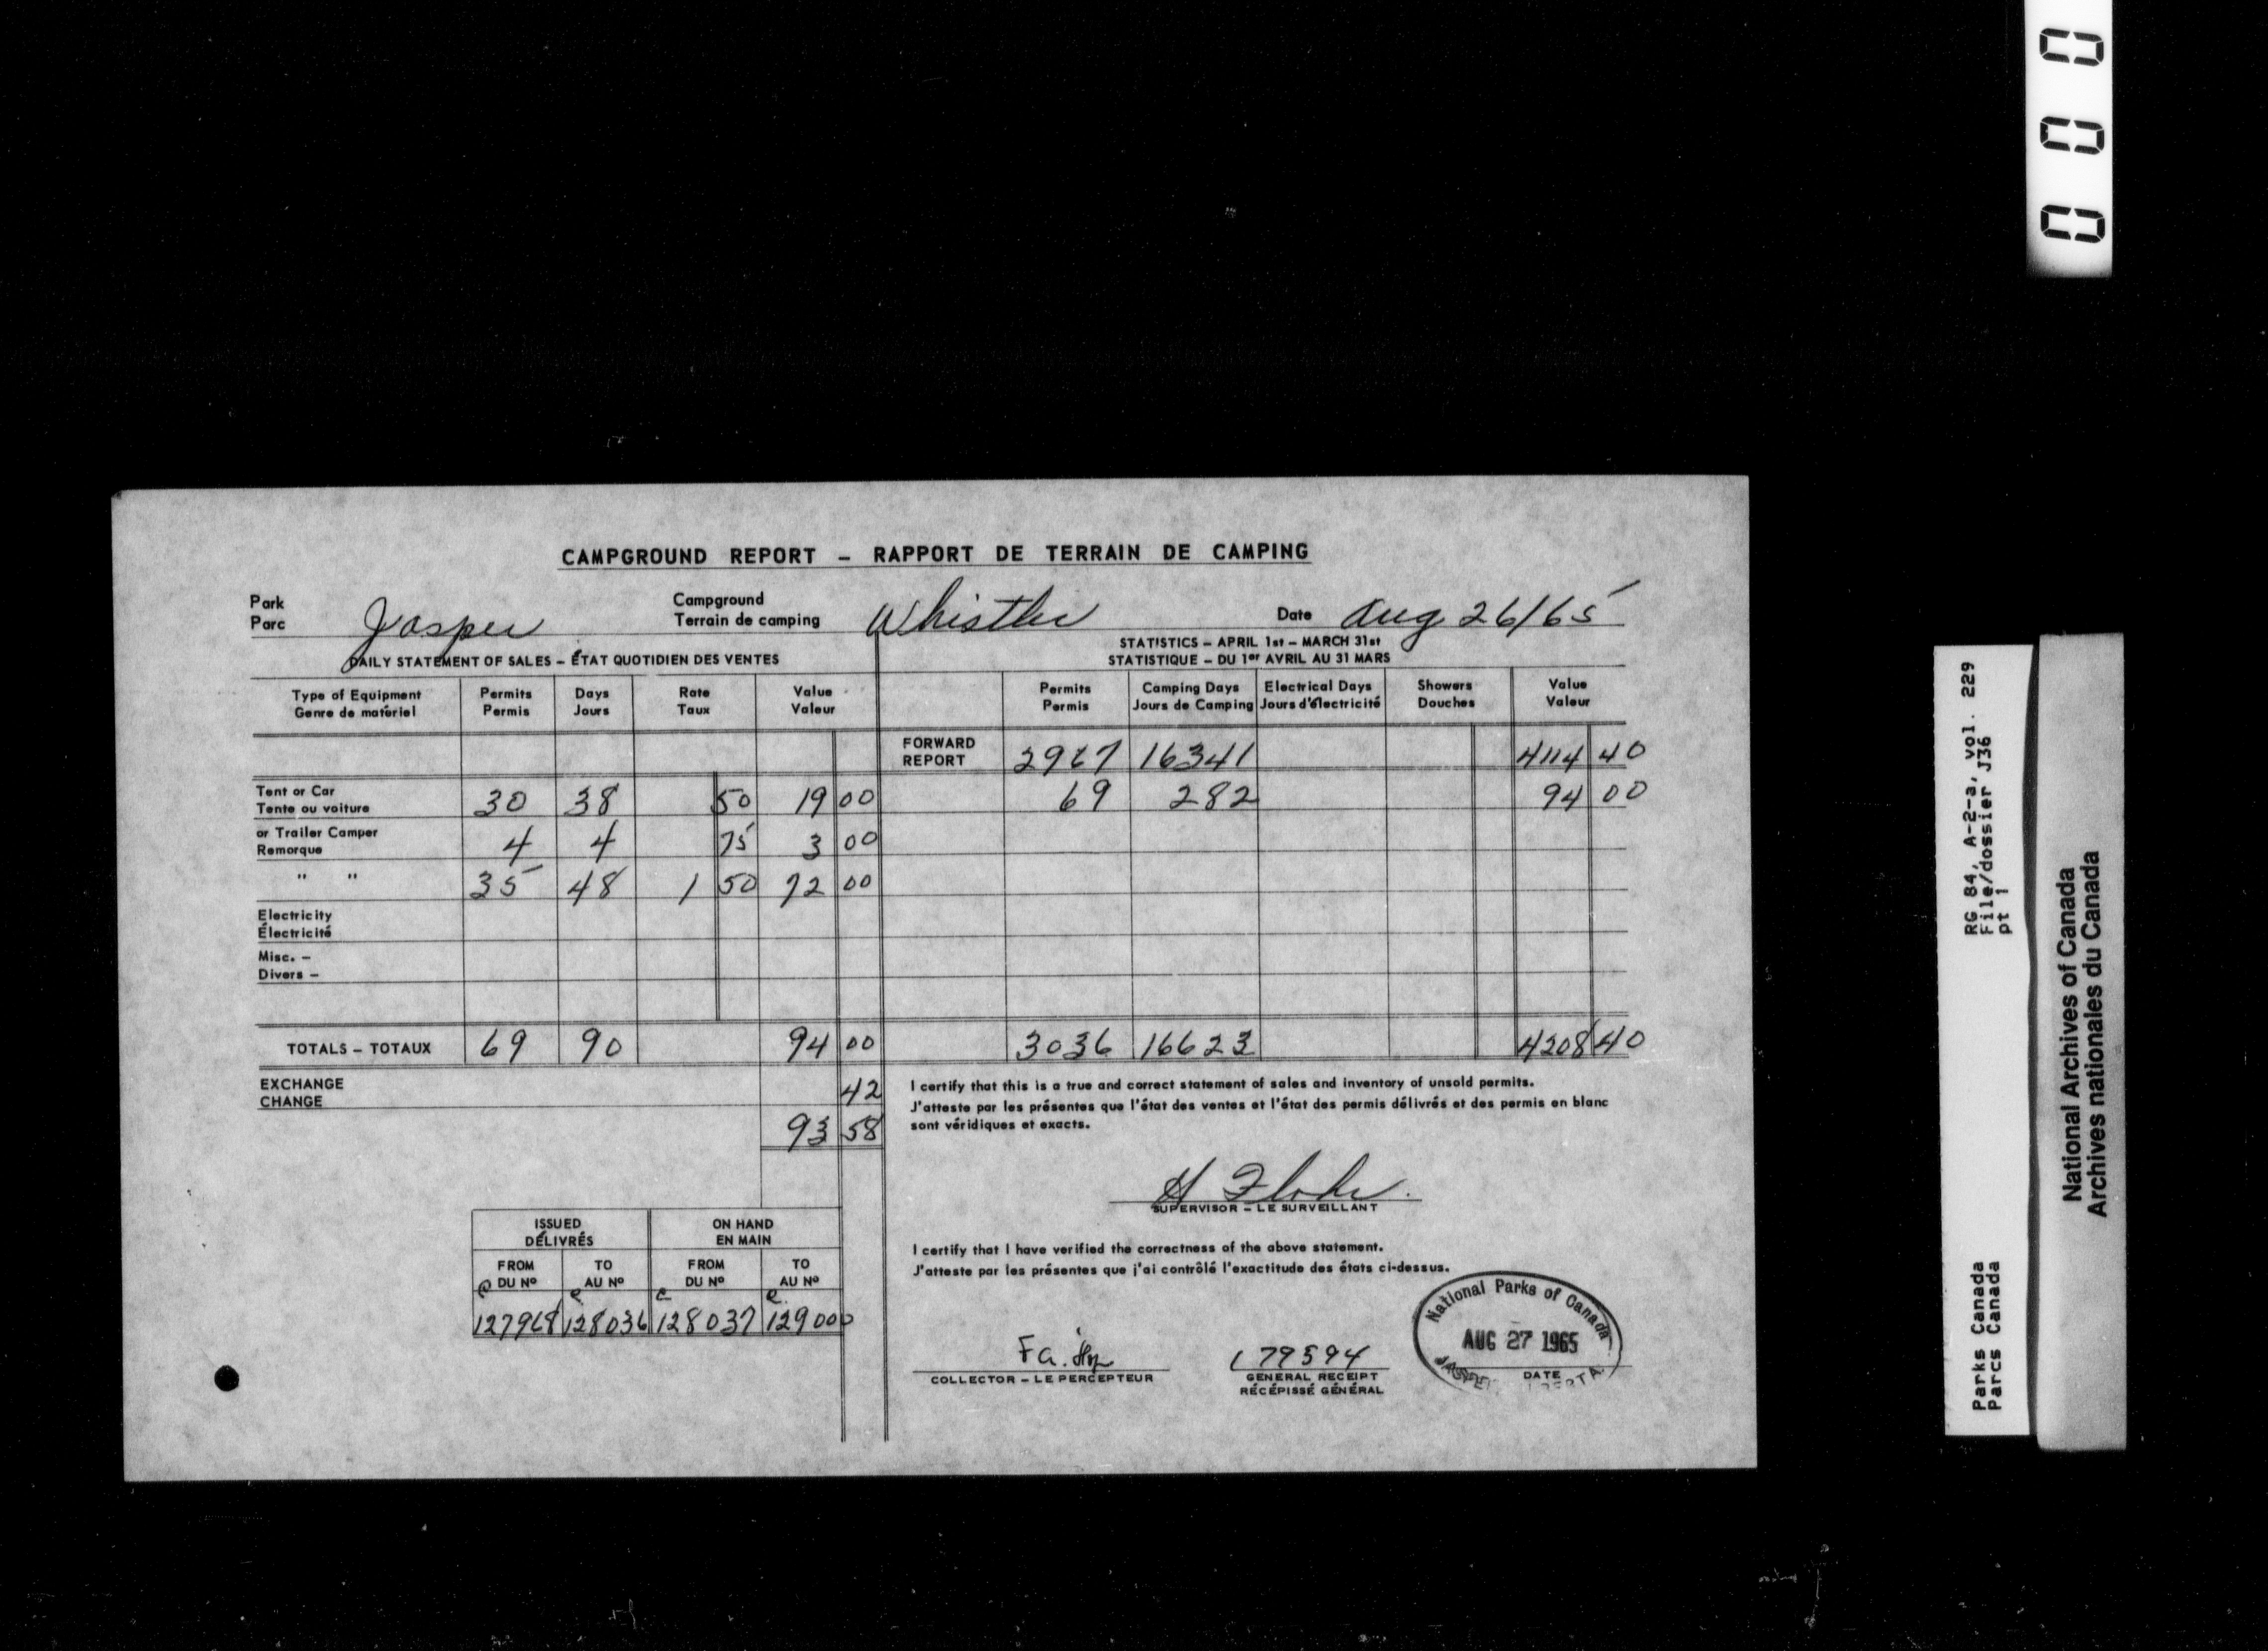 CAMPGROUND REPORT – RAPPORT DE TERRAIN DE CAMPING
Park Parc Jasper Campground Terrain de camping Whistler Date Aug 26/65
DAILY STATEMENT OF SALES – ÉTAT QUOTIDIEN DES VENTES
STATISTICS – APRIL 1st – MARCH 31st
STATISTIQUE – DU 1er AVRIL AU 31 MARS
Type of Equipment Permits Days Rate Value Permits Camping Days Electrical Days Showers Value
Genre de matériel Permis Jours Taux Valeur Permis Jours de Camping Jours d'électricité Douches Valeur
FORWARD REPORT 2967 16341 4114 40
Tent or Car Tente ou voiture 30 38 50 19 00 69 282 94 00
or Trailer Camper Remorque 4 4 75 3 00
" " 35 48 1 50 72 00
Electricity
Électricité
Misc. –
Divers –
TOTALS – TOTAUX 69 90 94 00 3036 16623 4208 40
EXCHANGE CHANGE 42
93 58
I certify that this is a true and correct statement of sales and inventory of unsold permits.
J'atteste par les présentes que l'état des ventes et l'état des permis délivrés et des permis en blanc
sont véridiques et exacts.
SUPERVISOR – LE SURVEILLANT
ISSUED ON HAND
DÉLIVRÉS EN MAIN
FROM TO FROM TO
DU Nº AU Nº DU Nº AU Nº
127968 128036 128037 129000
I certify that I have verified the correctness of the above statement.
J'atteste par les présentes que j'ai contrôlé l'exactitude des états ci-dessus.
179594
COLLECTOR – LE PERCEPTEUR
GENERAL RECEIPT
RÉCÉPISSÉ GÉNÉRAL
National Parks of Canada
AUG 27 1965
DATE
JASPER ALBERTA
000
RG 84, A-2-a, vol. 229
File/dossier J36
pt 1
Parks Canada
Parcs Canada
National Archives of Canada
Archives nationales du Canada